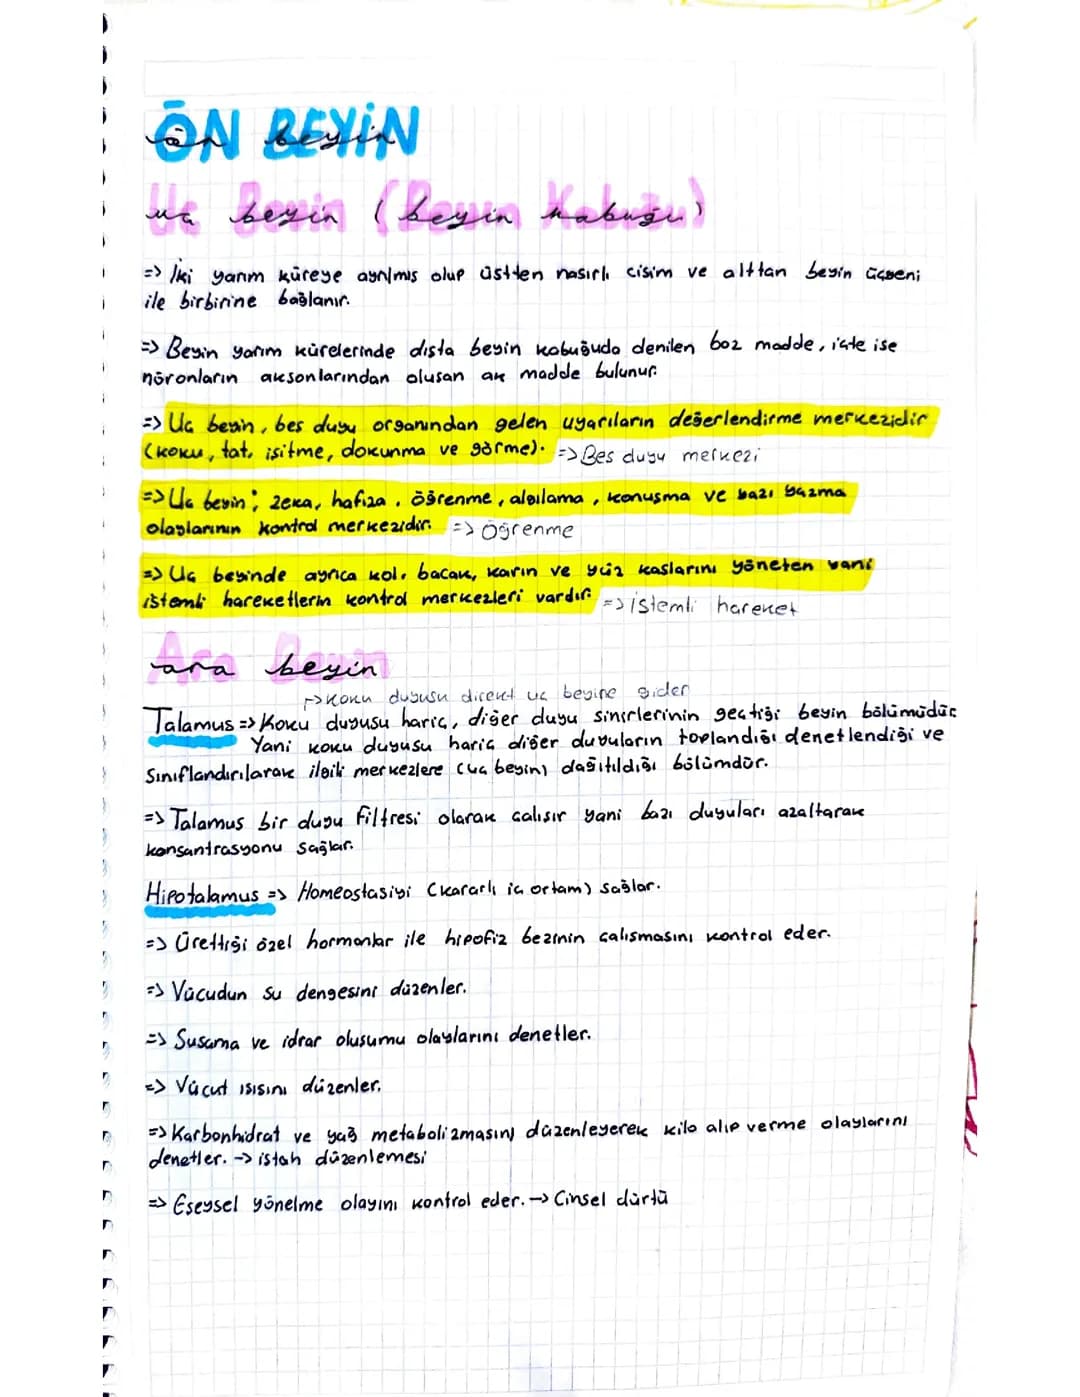 ÖN BEYİN
ön beyin
Uç Beyin (Beyin Kabuğu)
uç beyin (beyin kabuğu)
=> İki yarım küreye ayrılmış olup üstten nasırlı cisim ve alttan beyin üçgeni
ile birbirine bağlanır.
=> Beyin yarım kürelerinde dışta beyin kabuğuda denilen boz madde, içte ise
nöronların aksonlarından oluşan ak madde bulunur.
=> Uç beyin, beş duyu organından gelen uyarıların değerlendirme merkezidir
(koku, tat, işitme, dokunma ve görme). => Beş duyu merkezi
=> Uç beyin; zeka, hafıza, öğrenme, algılama, konuşma ve bazı yazma
olaylarının kontrol merkezidir. => Öğrenme
=> Uç beyinde ayrıca kol, bacak, karın ve yüz kaslarını yöneten yani
istemli hareketlerin kontrol merkezleri vardır. => istemli hareket
Ara Beyin
ara beyin
-> koku duyusu direkt uç beyine gider
Talamus => Koku duyusu hariç, diğer duyu sinirlerinin geçtiği beyin bölümüdür.
Yani koku duyusu hariç diğer duyuların toplandığı denetlendiği ve
sınıflandırılarak ilgili merkezlere (uç beyin) dağıtıldığı bölümdür.
=> Talamus bir duyu filtresi olarak çalışır yani bazı duyuları azaltarak
konsantrasyonu sağlar.
Hipotalamus => Homeostasiyi (kararlı iç ortam) sağlar.
=> Ürettiği özel hormonlar ile hipofiz bezinin çalışmasını kontrol eder.
=> Vücudun su dengesini düzenler.
=> Susama ve idrar oluşumu olaylarını denetler.
=> Vücut ısısını düzenler.
=> Karbonhidrat ve yağ metabolizmasını düzenleyerek kilo alıp verme olaylarını
denetler. -> iştah düzenlemesi
=> Eşeysel yönelme olayını kontrol eder. -> Cinsel dürtü